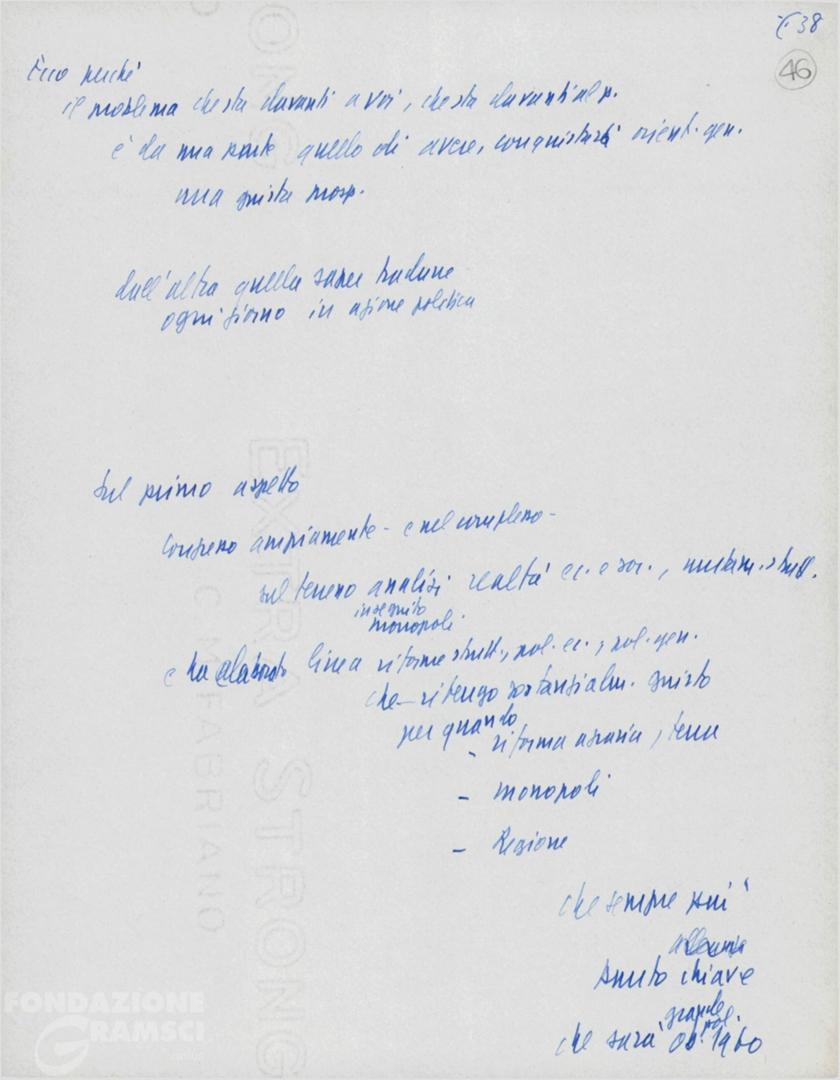 38
46
Ecco perché
il problema che sta davanti a voi, che sta davanti al p.
è da una parte quello di avere, conquistarsi orient. gen.
una giusta prosp.
dall'altra quello saper tradurre
ogni giorno in azione politica
Sul primo aspetto
Congresso ampiamente - e nel complesso -
sul terreno analisi realtà ec. e soc., mutam. strutt.
in seguito
monopoli
e ha elaborato linea riforme strutt., pol. ec., pol. gen.
che ritengo sostanzialm. giusta
per quando
- riforma agraria, terra
- monopoli
- Regione
che sempre più
punto chiave
grande
che sarà ob. pol. 1960
EXTRA STRONG
C M FABRIANO
FONDAZIONE
GRAMSCI